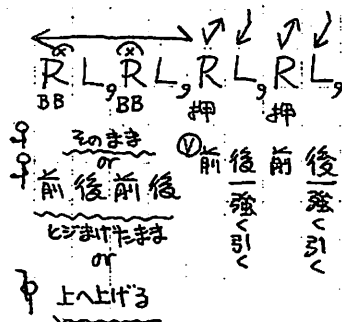 R L, R L, R L, R L,
BB BB 押 押
そのまま
or
前後前後
ヒジまげたまま
or
上へ上げる
Ⓥ前後前後
強く引く
強く引く